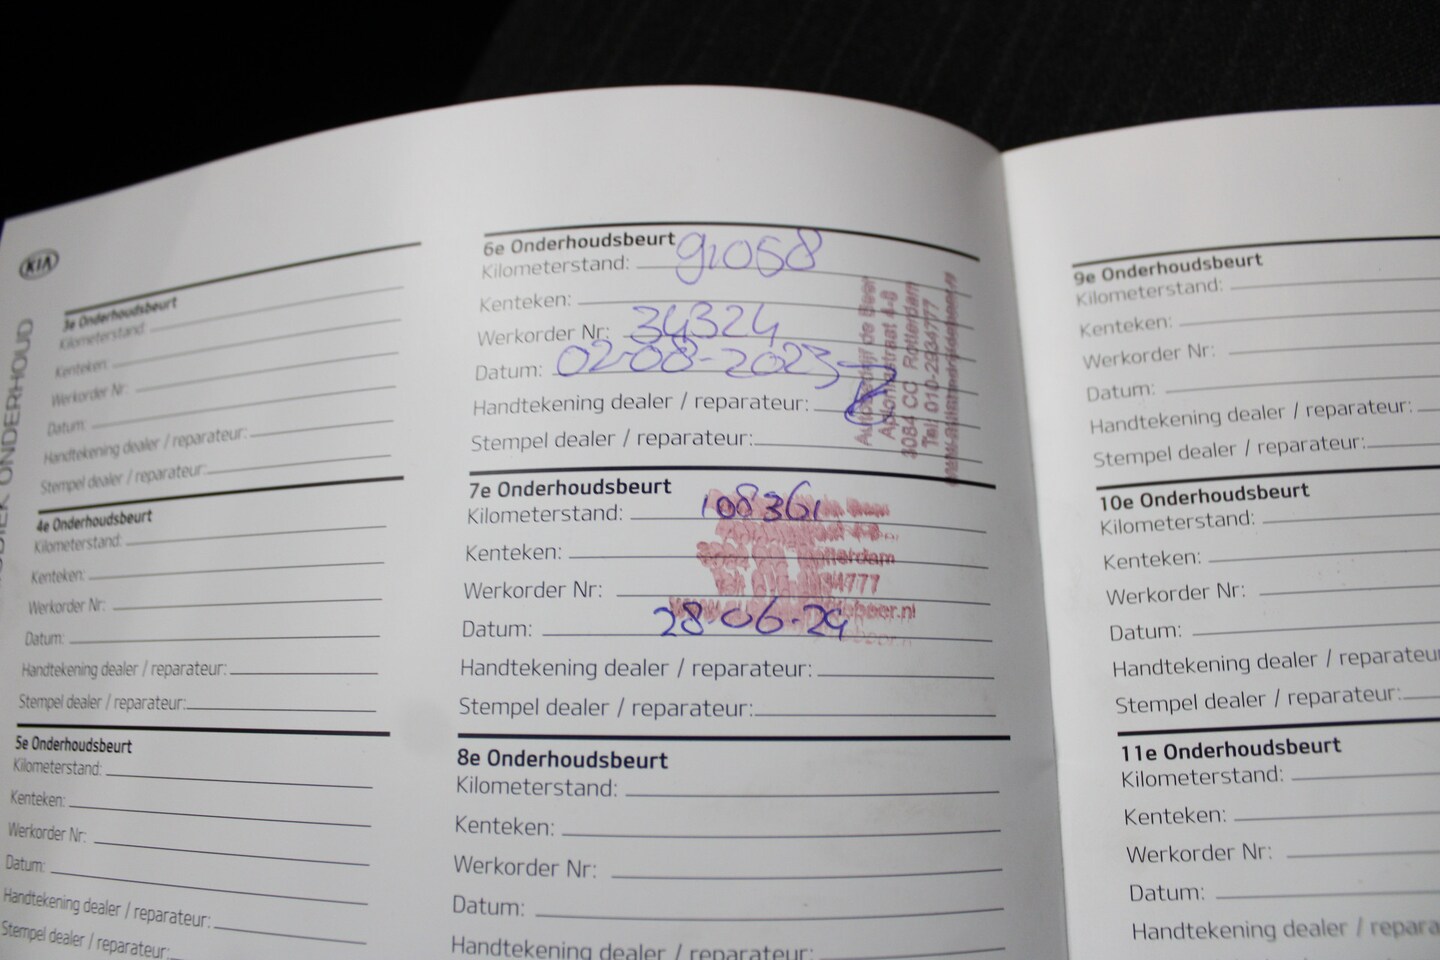 KIA
ONDERHOUD
3e Onderhoudsbeurt
Kilometerstand:
Kenteken:
Werkorder Nr:
Datum:
Handtekening dealer / reparateur:
Stempel dealer / reparateur:
4e Onderhoudsbeurt
Kilometerstand:
Kenteken:
Werkorder Nr:
Datum:
Handtekening dealer / reparateur:
Stempel dealer / reparateur:
5e Onderhoudsbeurt
Kilometerstand:
Kenteken:
Werkorder Nr:
Datum:
Handtekening dealer / reparateur:
Stempel dealer / reparateur:
6e Onderhoudsbeurt
Kilometerstand: 91058
Kenteken:
Werkorder Nr: 34324
Datum: 02-08-2023
Handtekening dealer / reparateur:
Stempel dealer / reparateur:
Autobedrijf de Beer
3084 CC Rotterdam
Tel. 010-2934777
7e Onderhoudsbeurt
Kilometerstand: 108361
Kenteken:
Werkorder Nr:
Datum: 28-06-24
Handtekening dealer / reparateur:
Stempel dealer / reparateur:
8e Onderhoudsbeurt
Kilometerstand:
Kenteken:
Werkorder Nr:
Datum:
Handtekening dealer / reparateur:
9e Onderhoudsbeurt
Kilometerstand:
Kenteken:
Werkorder Nr:
Datum:
Handtekening dealer / reparateur:
Stempel dealer / reparateur:
10e Onderhoudsbeurt
Kilometerstand:
Kenteken:
Werkorder Nr:
Datum:
Handtekening dealer / reparateu
Stempel dealer / reparateur:
11e Onderhoudsbeurt
Kilometerstand:
Kenteken:
Werkorder Nr:
Datum:
Handtekening dealer / repara